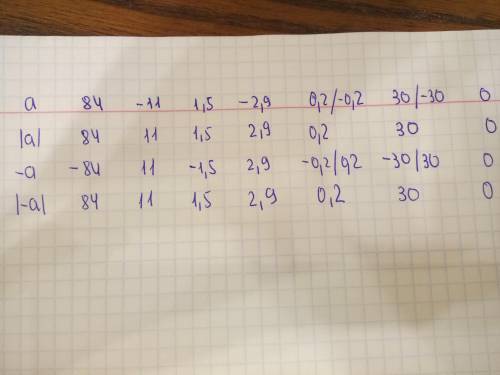 a 84 -11 1,5 -2,9 0,2/-0,2 30/-30 0
|a| 84 11 1,5 2,9 0,2 30 0
-a -84 11 -1,5 2,9 -0,2/0,2 -30/30 0
|-a| 84 11 1,5 2,9 0,2 30 0